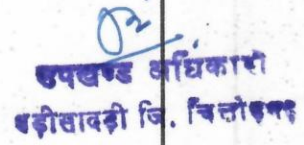 उपखण्ड अधिकारी
बड़ीसादड़ी जि. चित्तौड़गढ़